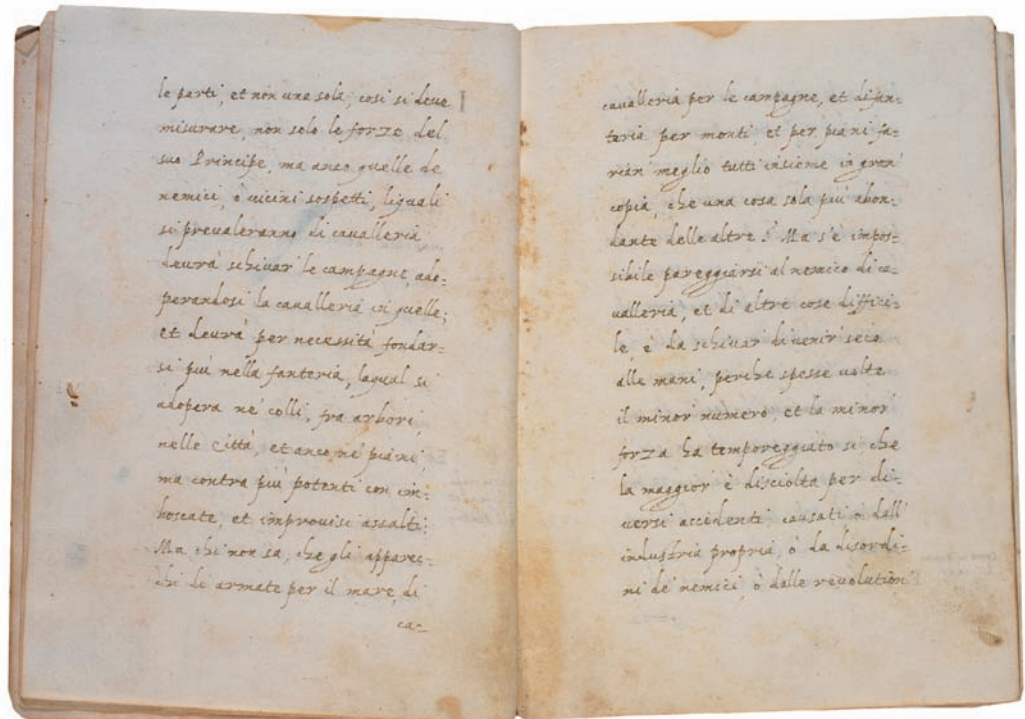 le parti, et non una sola, così si deve
misurare, non solo le forze del
suo Principe, ma anco quelle de
nemici, ò vicini sospetti, liquali
si prevaleranno di cavalleria
devrà schivar le campagne, ado=
perandosi la cavalleria in quelle;
et devrà per necessità fondar=
si più nella fanteria, laqual si
adopera ne' colli, fra arbori,
nelle Città, et anco ne' piani,
ma contra più potenti con im=
boscate, et improvisi assalti.
Ma chi non sa, che gli apparec=
chi di armate per il mare, di
ca=
cavalleria per le campagne, et di fan=
teria per monti, et per piani fa=
rian meglio tutti insieme in gran
copia, che una cosa sola più abon=
dante delle altre? Ma s'è impos=
sibile pareggiarsi al nemico di ca=
valleria, et di altre cose diffici=
le, è da schivar di venir seco
alle mani, perche spesse volte
il minor numero, et la minor
forza ha temporeggiato si che
la maggior è disciolta per di=
versi accidenti, causati ò dall'
industria propria, ò da disordi=
ni de' nemici, ò dalle revolution